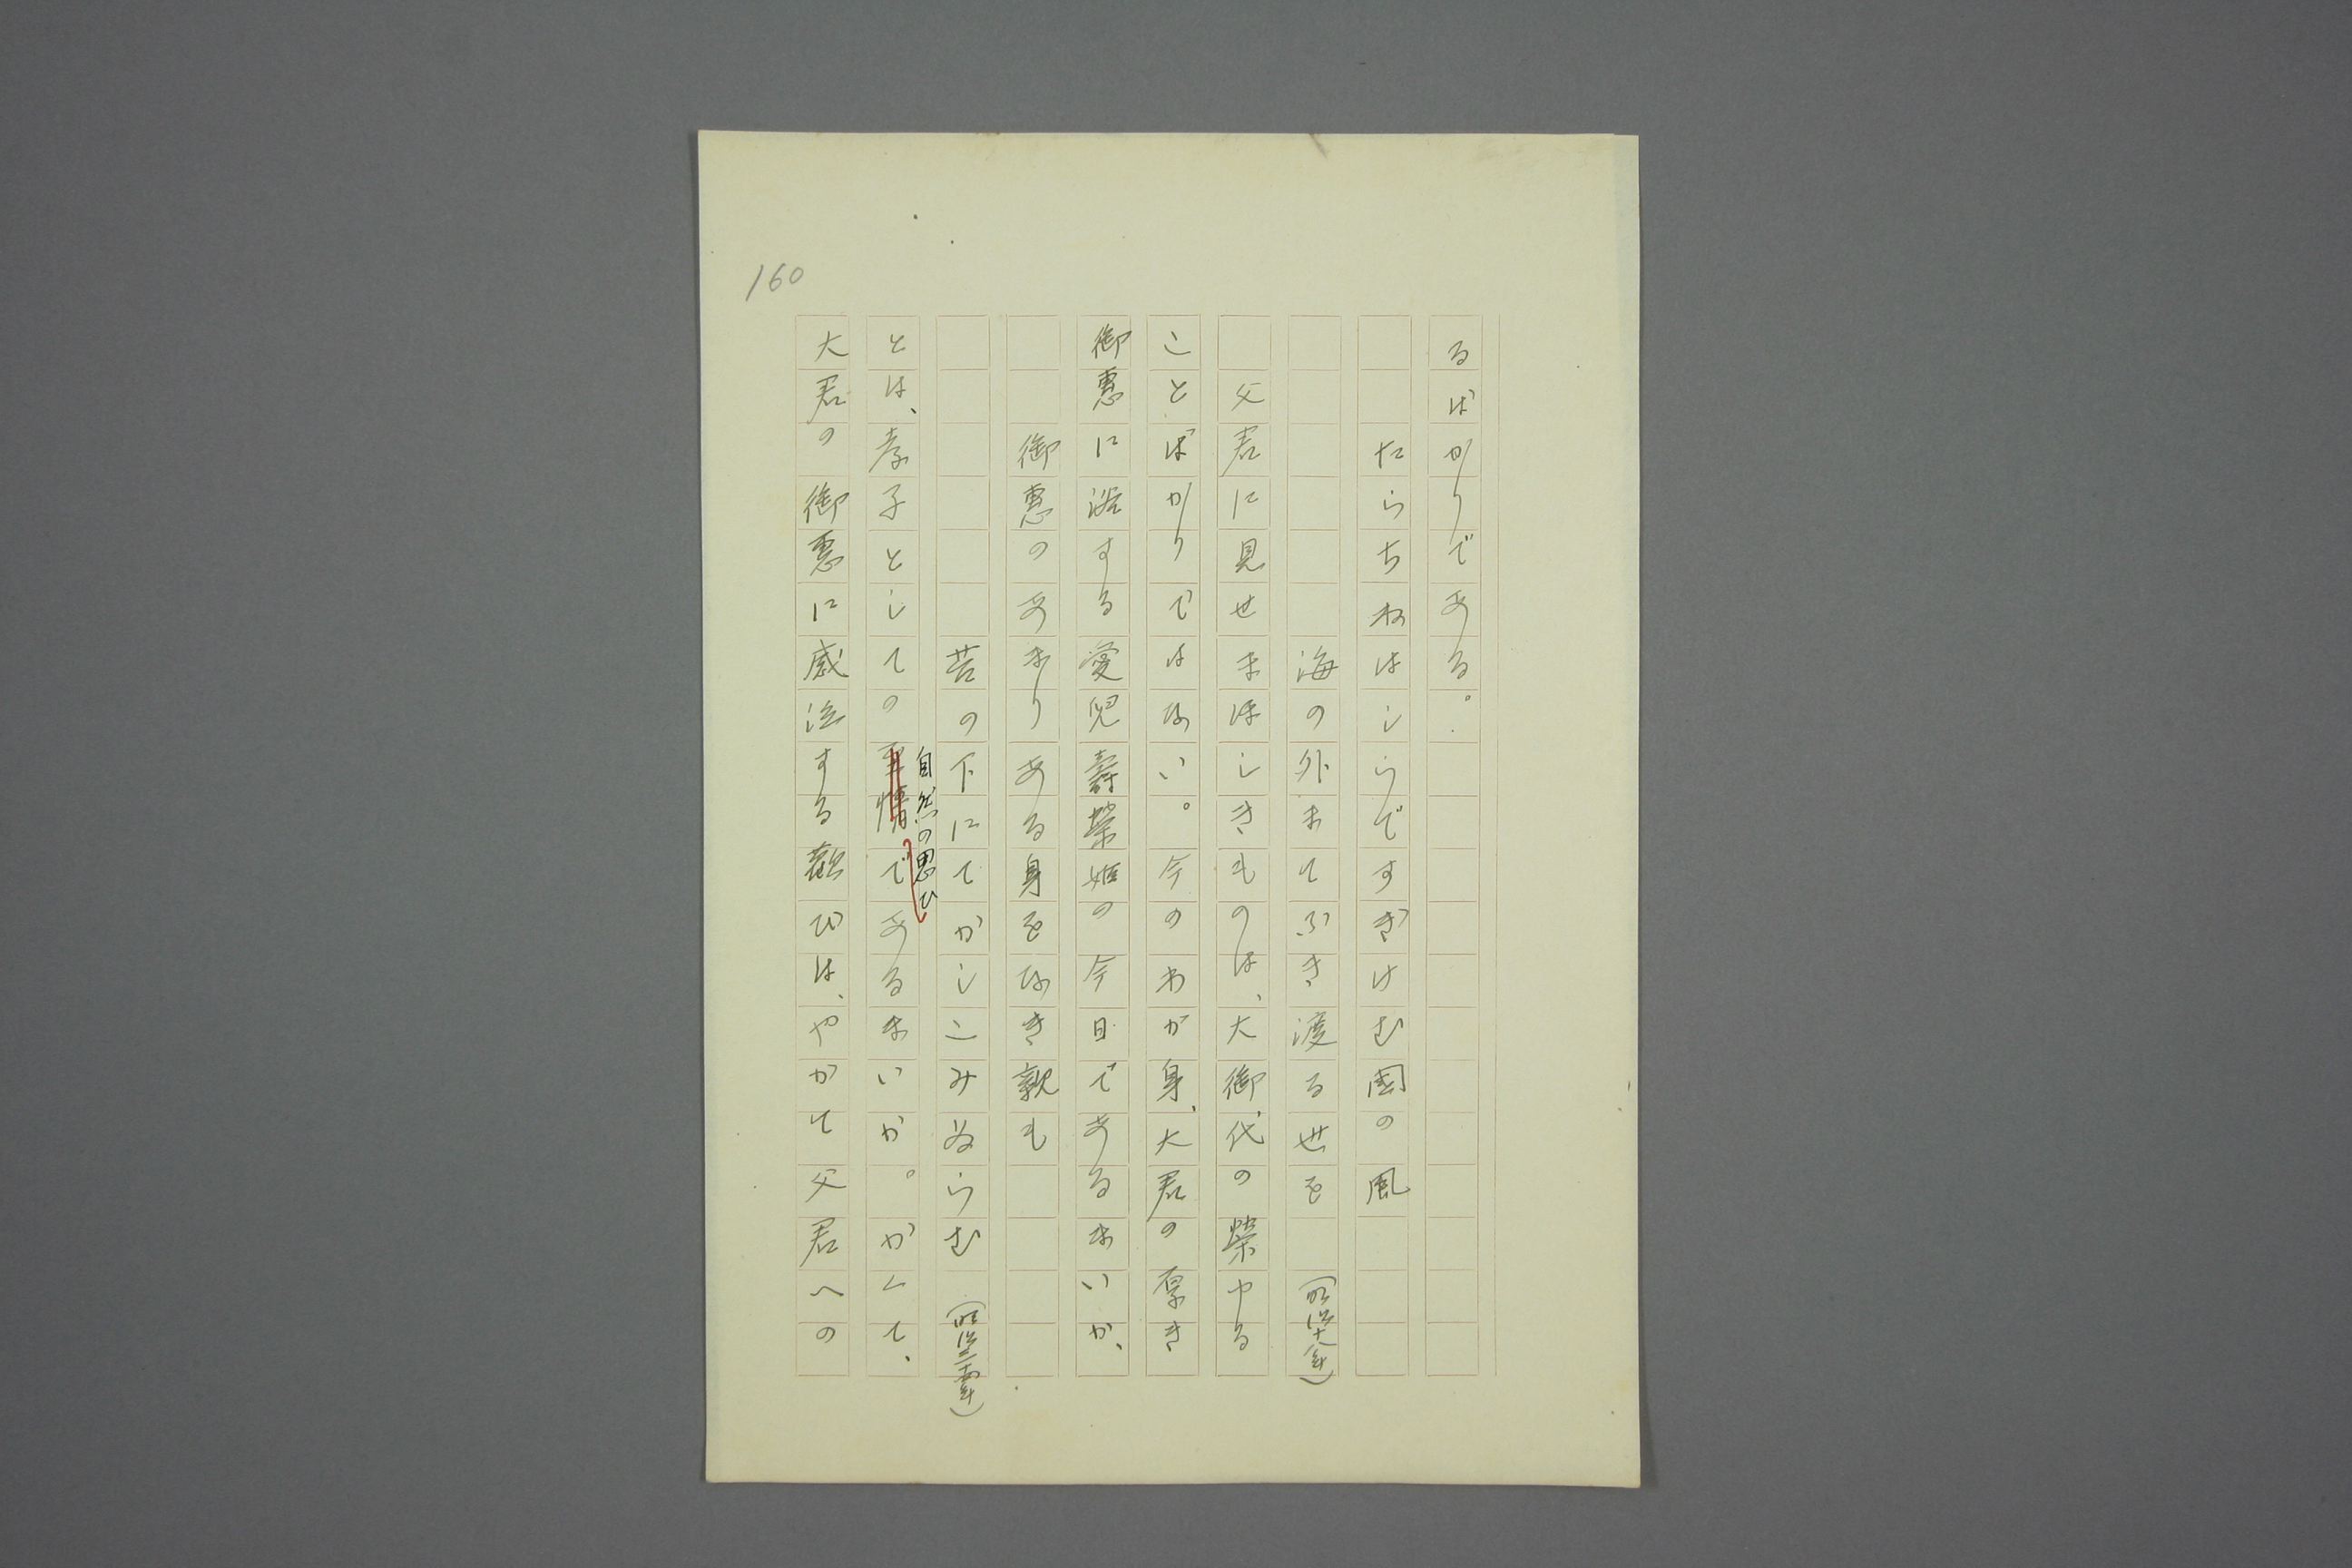 160
るばかりである。
たらちねはしらですぎけむ国の風
海の外まてふき渡る世を（明治十八年）
父君に見せまほしきものは、大御代の榮ゆる
ことばかりではない。今のわが身、大君の厚き
御惠に浴する愛児壽榮姫の今日であるまいか、
御惠のあまりある身をなき親も
苔の下にてかしこみゐらむ（明治二十四年）
とは、孝子としての自然の思ひであるまいか。かくて、
大君の御惠に感泣する歡びは、やがて父君への